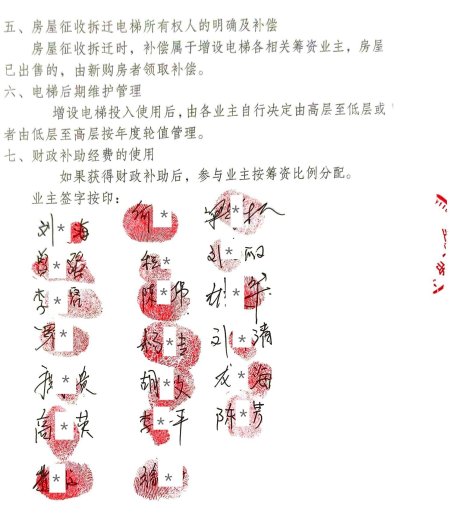 五、房屋征收拆迁电梯所有权人的明确及补偿
房屋征收拆迁时，补偿属于增设电梯各相关筹资业主，房屋
已出售的，由新购房者领取补偿。
六、电梯后期维护管理
增设电梯投入使用后，由各业主自行决定由高层至低层或
者由低层至高层按年度轮值管理。
七、财政补助经费的使用
如果获得财政补助后，参与业主按筹资比例分配。
业主签字按印：
刘*海 *
* 刘*丽
李*君 陈*伟 *
罗* 杨*吉 刘*清
*发 胡*文 成*海
高*英 李*平 陈*芳
* *